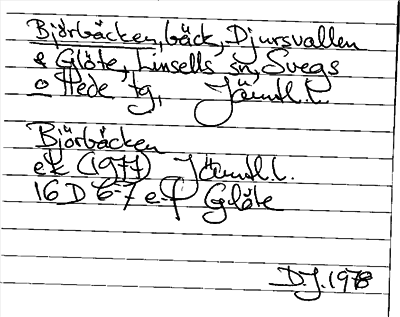 Björbäcken, bäck, Djursvallen
& Glöte, Linsells sn, Svegs
o Hede tg, Jämtl.l.
Björbäcken
ek (1977) Jämtl.l.
16D 6-7 e-f Glöte
D.J. 1978